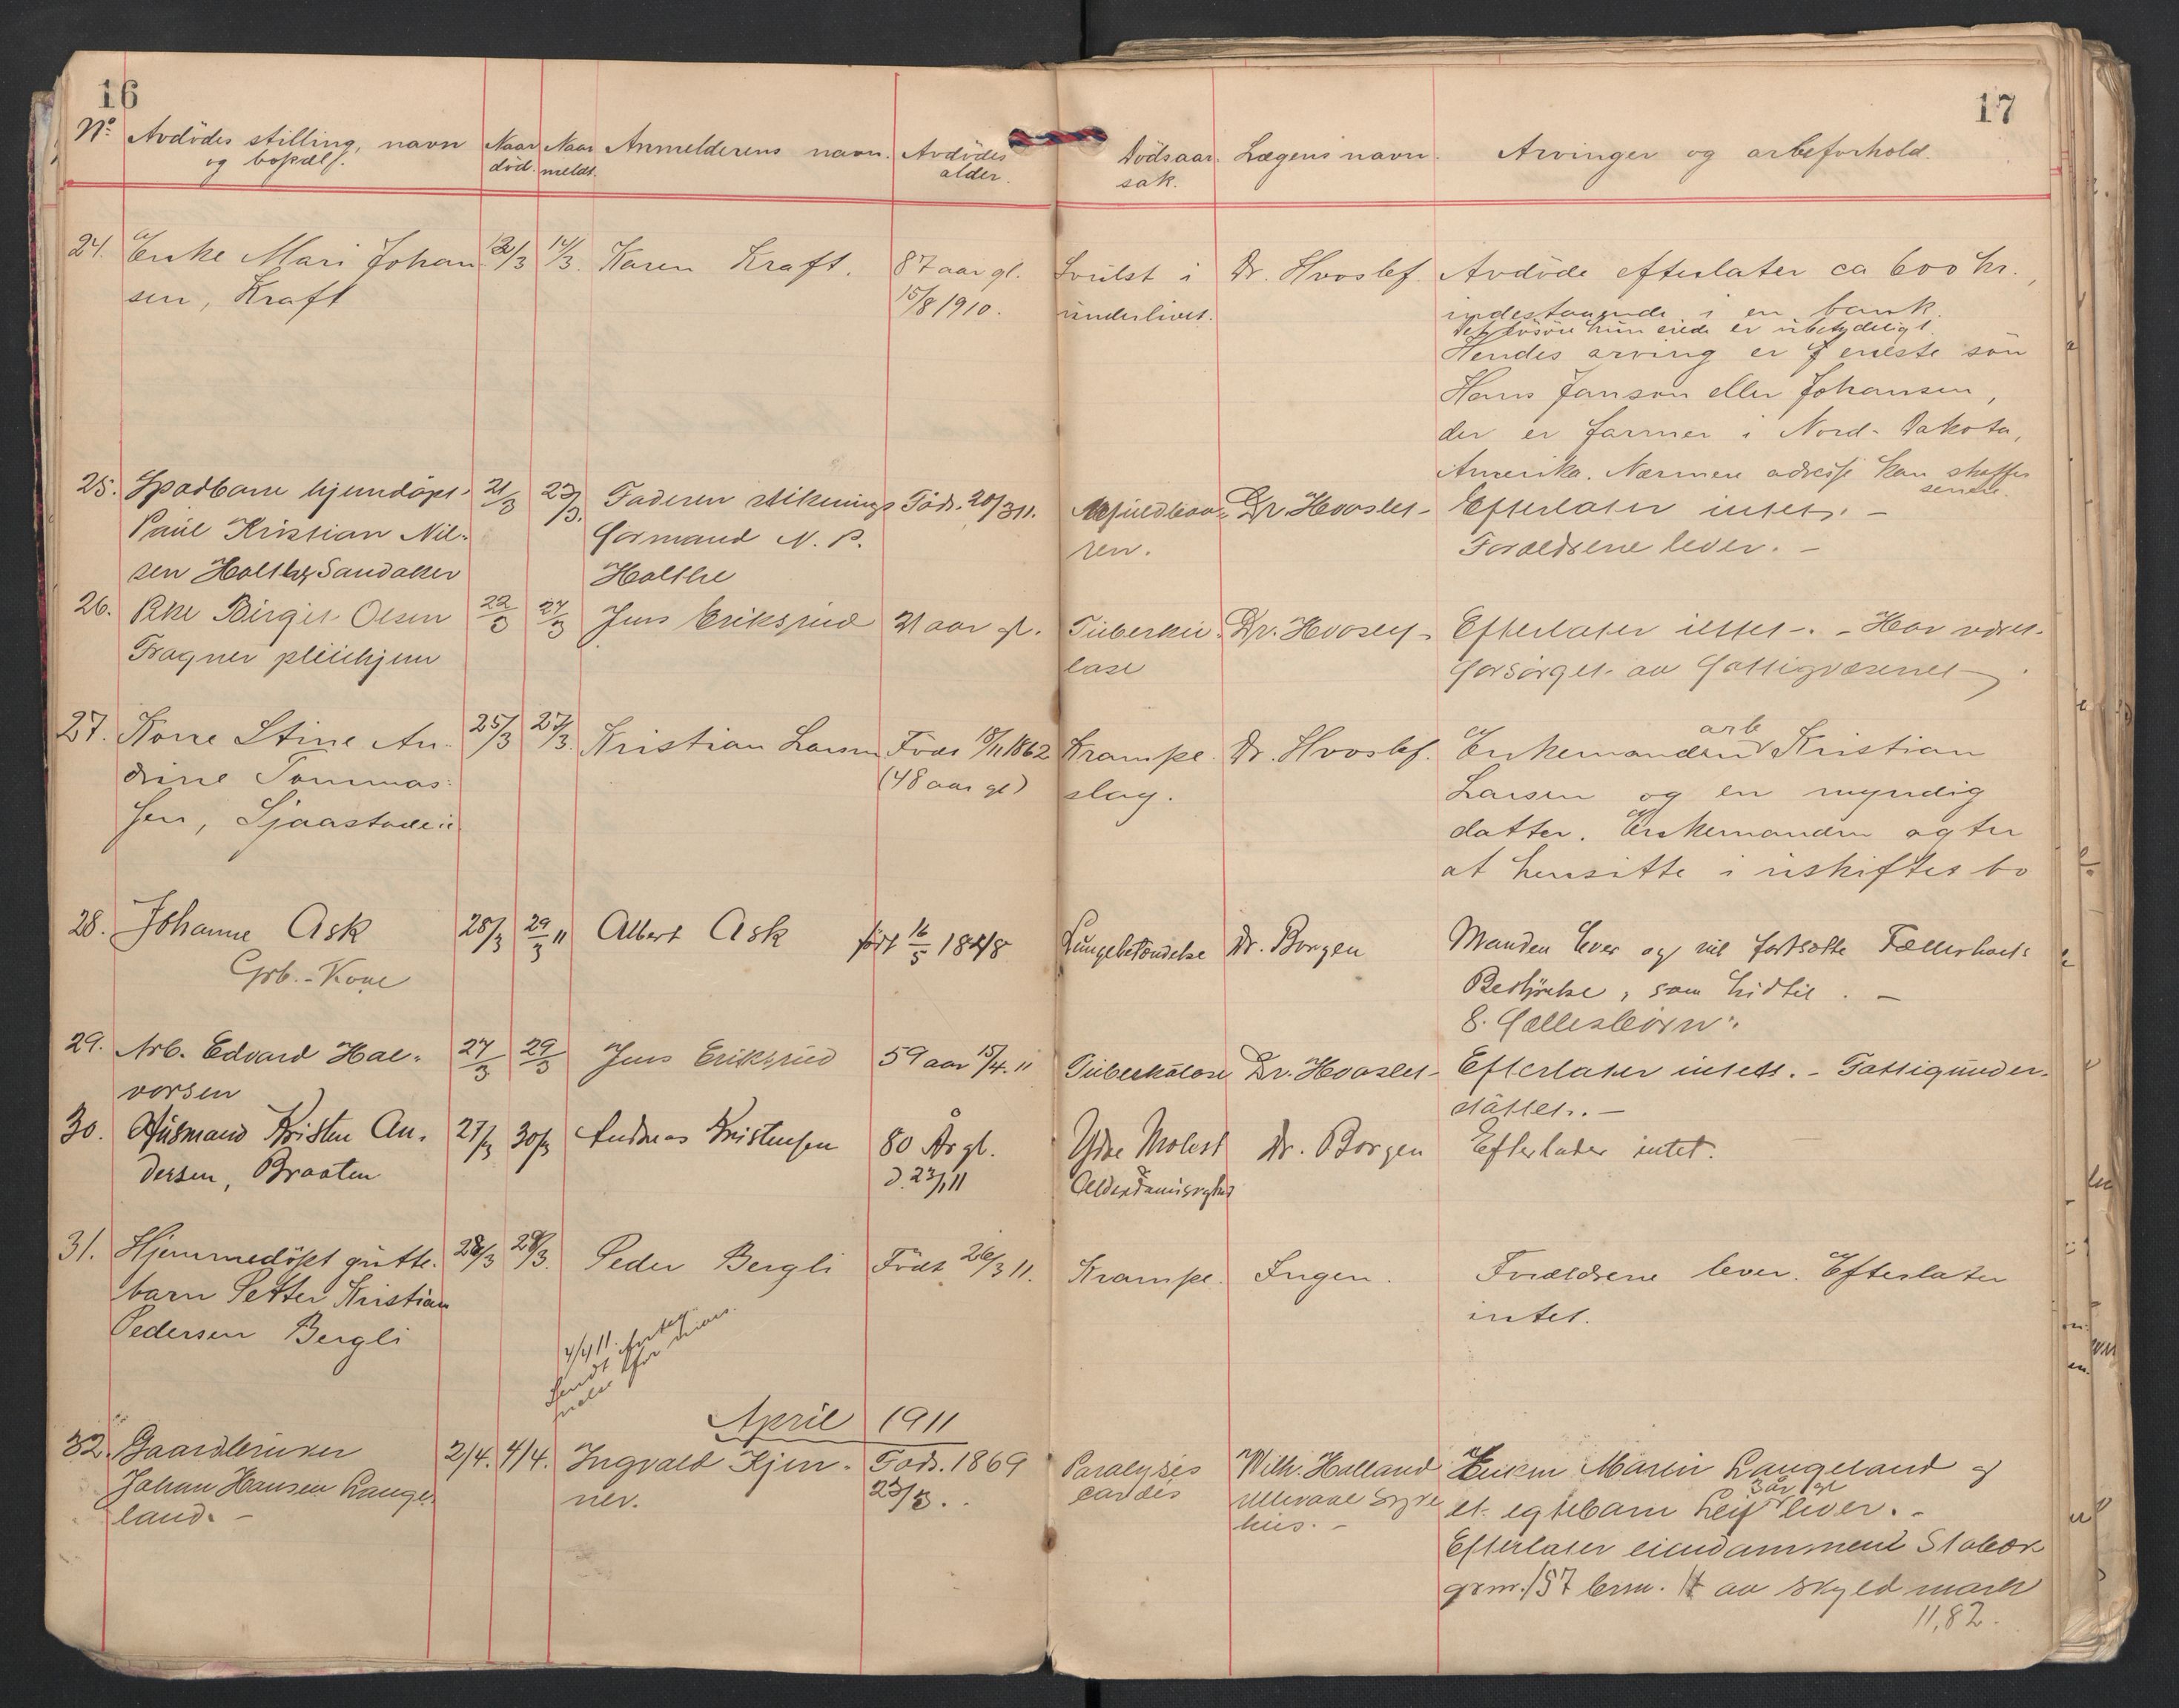 16
17
No Avdödes stilling, navn og bopæl.
Naar död.
Naar meldt.
Anmelderens navn.
Avdödes alder.
Dödsaar sak.
Lægens navn.
Arvinger og arbeforhold.
24. Enke Mari Johan 12/3 14/3 Karen Kraft. 87 aar gl. Svulst i Dr. Hvoslef. Avdöde efterlater ca 600 kr.,
sen, Kraft 15/8 1910. underlivet. indestaaende i en bank.
Det lösöre hun eiede er ubetydeligt.
Hendes arving er eneste sön
Hans Janson eller Johansen,
der er farmer i Nord-Dakota,
Amerika. Nærmere adresse kan skaffes
senere.
25. Spædbarn hjemdöpt 21/3 23/3. Faderen stiknings Föd. 20/3 11. Dr Hvoslef Efterlater intet. -
Paul Kristian Nil- formand N. P. ren. Forældrene lever. -
sen Holthe, Sandaker Holthe
26. Pike Birgit Olsen 22/3 24/3 Jens Eriksrud 21 aar gl. Tuberku- Dr. Hvoslef Efterlater intet. - Har været
Fragner pleiehjem lose forsörget av fattigvæsenet
27. Kone Stine An- 25/3 27/3. Kristian Larsen Födt 18/11 1862 Krampe Dr. Hvoslef. Enkemanden arb Kristian
drine Tommas- (48 aar gl) slag. Larsen og en myndig
sen, Sjaastadei datter. Enkemanden agter
at hensitte i uskiftet bo
28. Johanne Ask 28/3 29/3 11 Albert Ask födt 16/5 1848 Lungebetændelse Dr. Borgen Manden lever og vil fortsætte Fællesboets
Grb.-Kone Bestyrelse, som hidtil. -
8. Fællesbörn.
29. Arb. Edvard Hal- 27/3 29/3 Jens Eriksrud 59 aar 15/4. 11 Tuberkulose Dr. Hvoslef Efterlater intet. - Fattigunder-
vorsen stöttet. -
30. Husmand Kristen An- 27/3 30/3 Andreas Kristensen 80 År gl. Ydre Molest Dr. Borgen Efterlader intet.
dersen, Braaten d. 23/1 11
31. Hjemmedöpt gutte- 28/3 29/3. Peder Bergli Födt 26/3 11. Krampe. Ingen. Forældrene lever. Efterlater
barn Petter Kristian intet.
Pedersen Bergli
4/4 11.
sendt
April 1911
32. Gaardbruker 2/4. 4/4. Ingvald Kjen- Föd. 1869 Paralysis Wilh. Holland Enken Marie Langeland og
Johan Hansen Lange- ner. 23/3. cardis Ullevaal syke et egtebarn Leif 3 år gl lever. -
land. - hus. - Efterlater eiendommen Stabæk
grnr. 157 brnr. 14 av skyld mark
11,82.